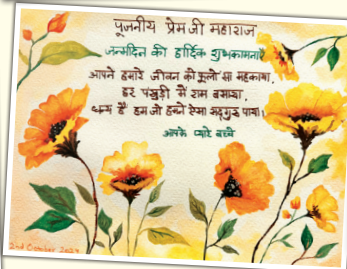 पूजनीय प्रेम जी महाराज
जन्मदिन की हार्दिक शुभकामनाएँ
आपने हमारे जीवन को फूलों सा महकाया,
हर पंखुड़ी में राम बसाया,
धन्य हैं हम जो हमने ऐसा सद्गुरु पाया।
आपके प्यारे बच्चे
2nd October 2024